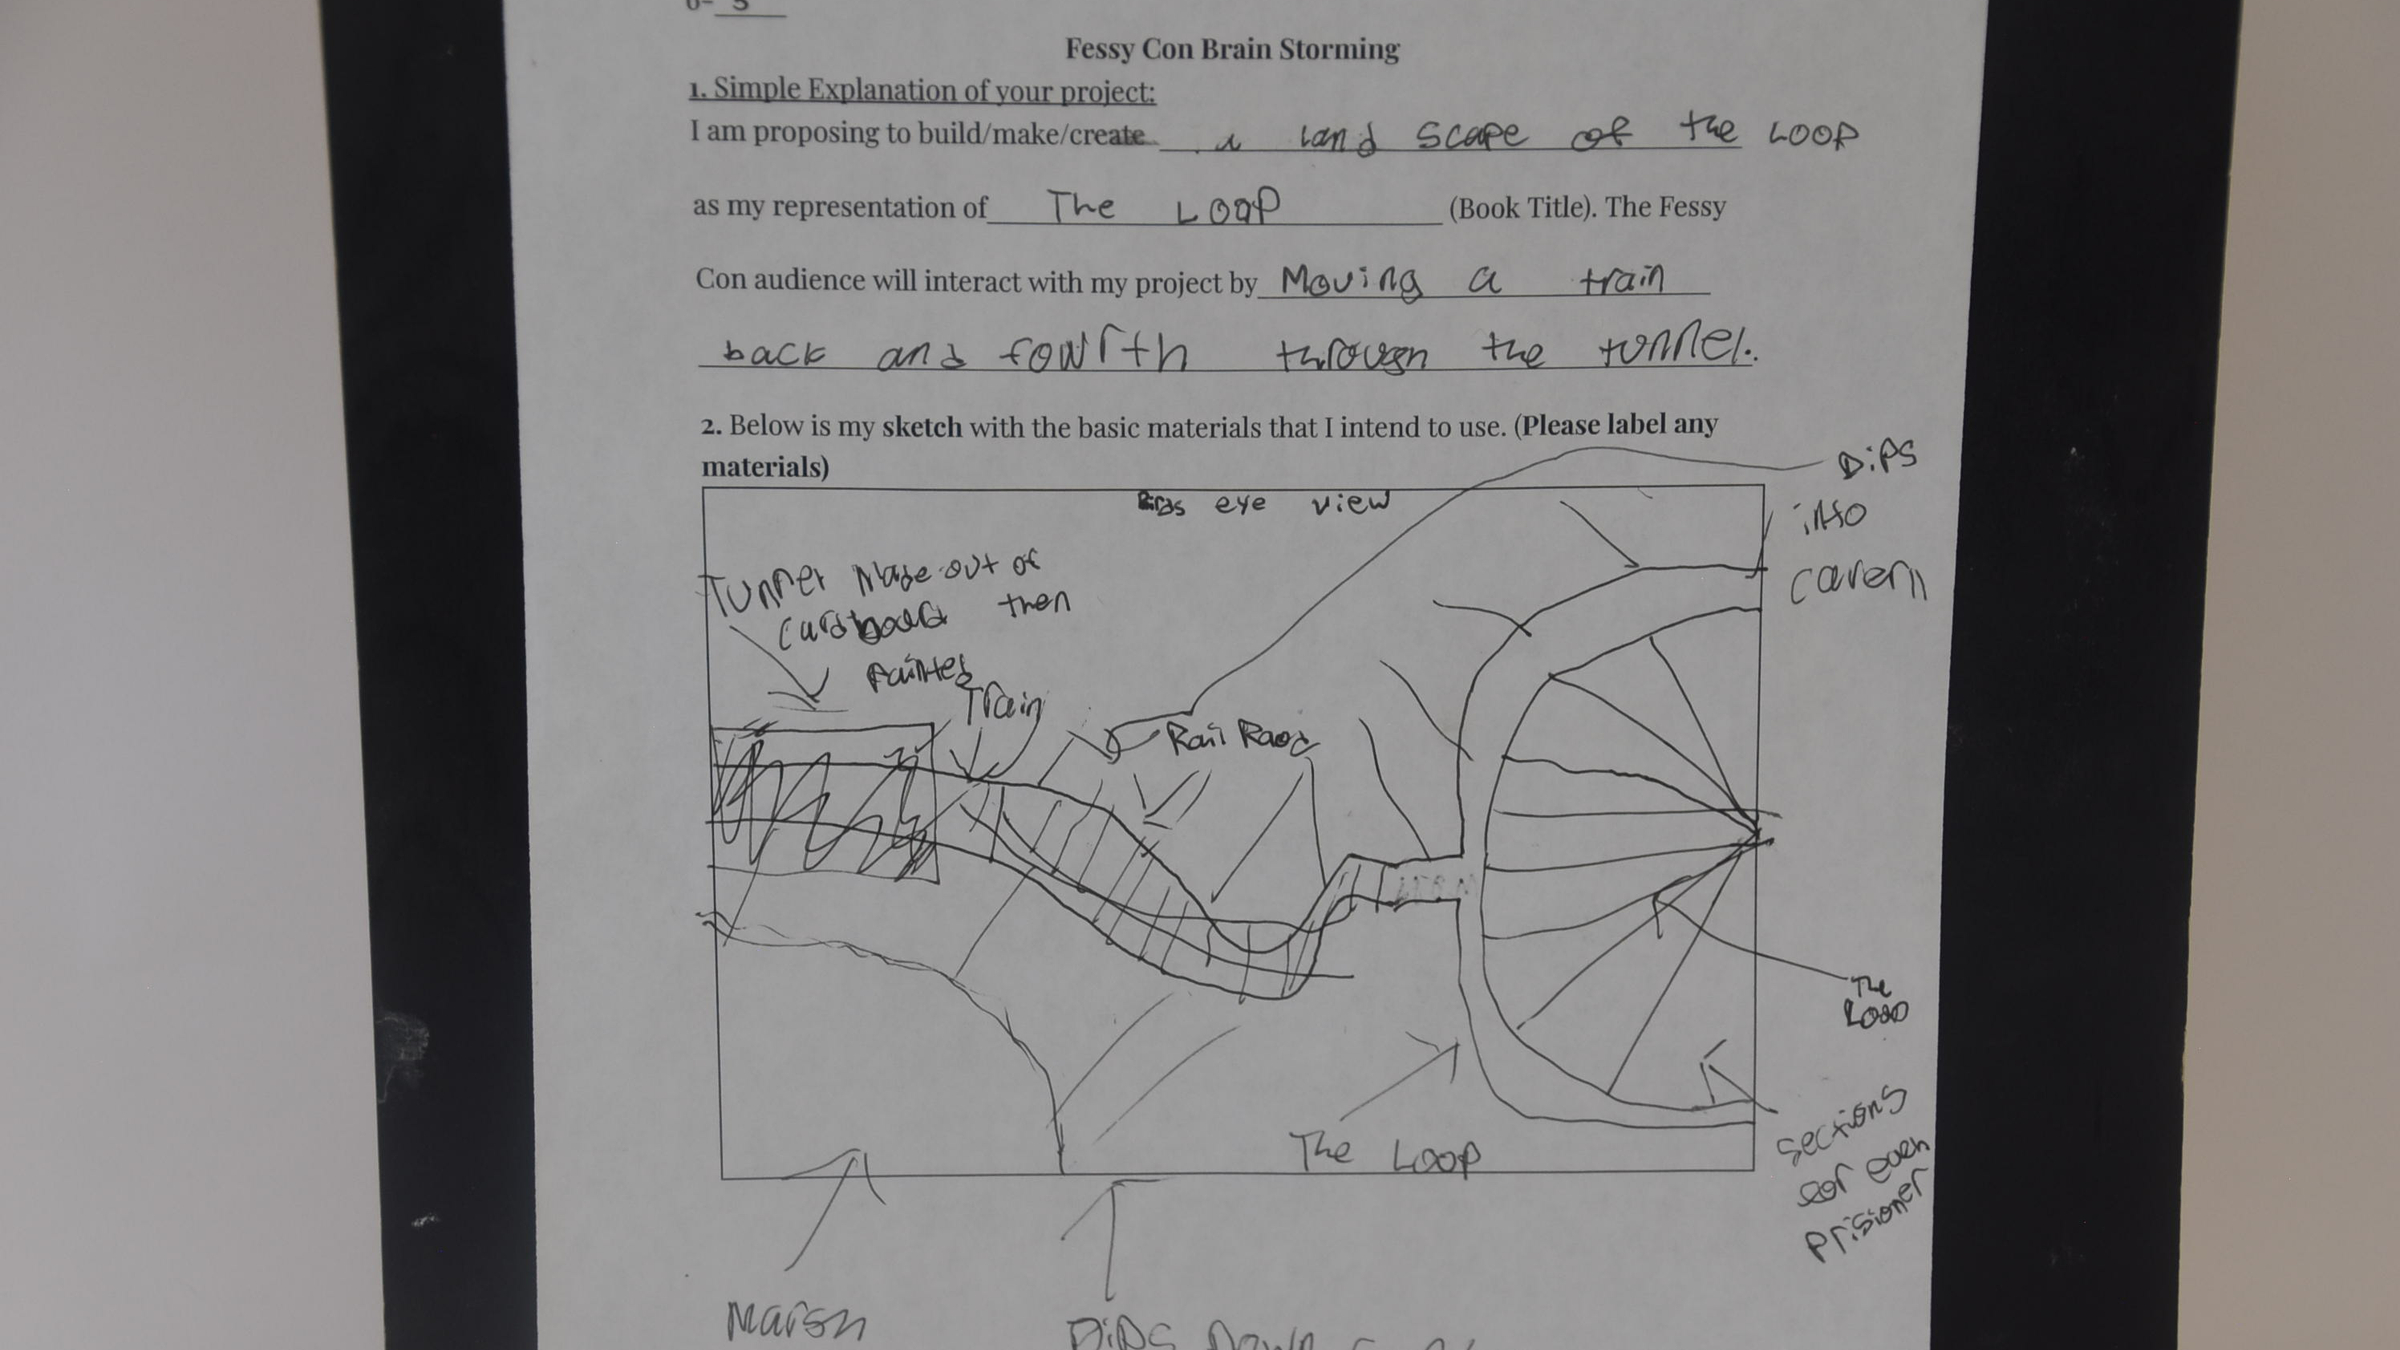 6- 5
Fessy Con Brain Storming
1. Simple Explanation of your project:
I am proposing to build/make/create a land scape of the LOOP
as my representation of The Loop (Book Title). The Fessy
Con audience will interact with my project by Moving a train
back and fowrth through the tunnel.
2. Below is my sketch with the basic materials that I intend to use. (Please label any
materials)
Birds eye view
Dips
into
cavern
Tunnel Made out of
Cardboard then
painted
Train
Rail Raod
The
Loop
The Loop
Sections
for even
prisioner
Marsh
Dips Down